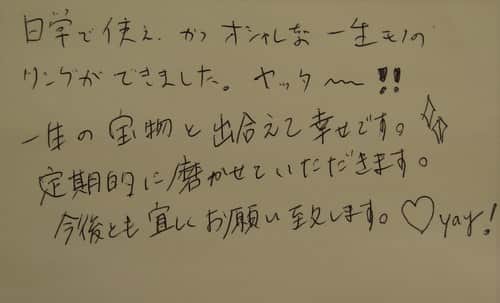 日常で使え、かつオシャレな一生モノの
リングができました。ヤッター〜!!
一生の宝物と出合えて幸せです。
定期的に磨かせていただきます。
今後とも宜しくお願い致します。♡yay!